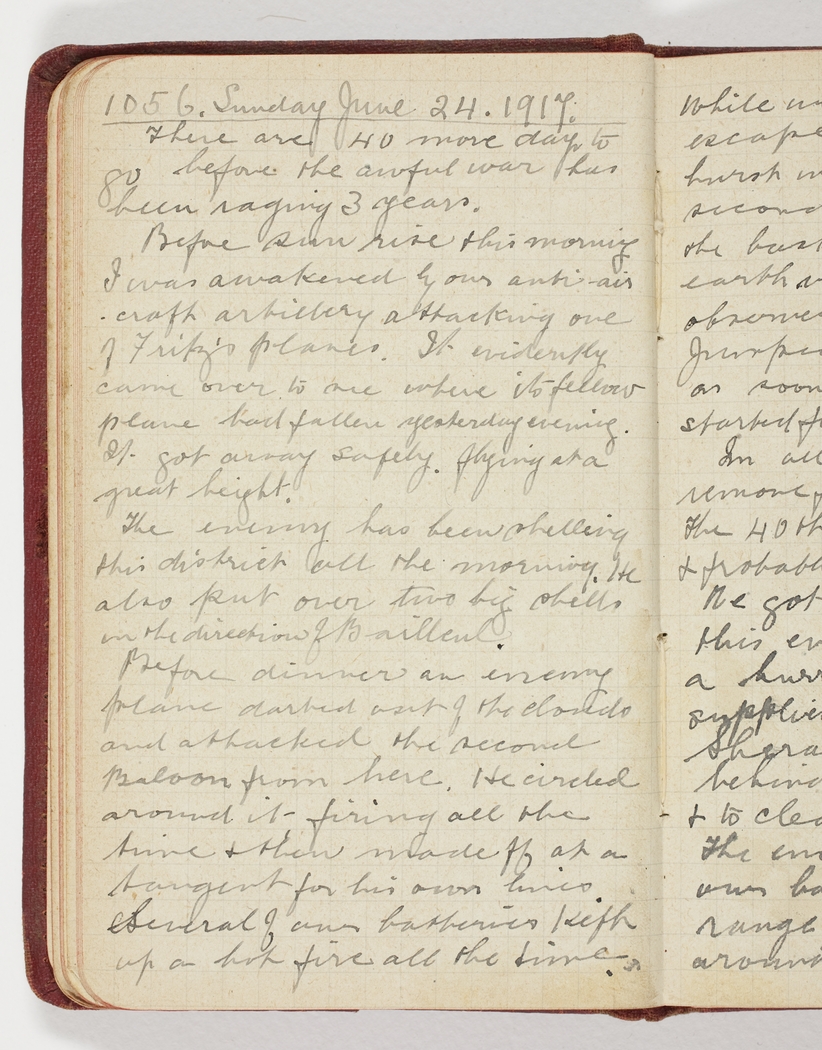 1056. Sunday June 24. 1917.
There are 40 more days to
go before the awful war has
been raging 3 years.
Before sun rise this morning
I was awakened by our anti-air
-craft artillery attacking one
of Fritz's planes. It evidently
came over to see where its fellow
plane had fallen yesterday evening.
It got away safely. flying at a
great height.
The enemy has been shelling
this district all the morning. He
also put over two big shells
in the direction of Bailleul.
Before dinner an enemy
plane darted out of the clouds
and attacked the second
Baloon from here. He circled
around it firing all the
time & then made off at a
tangent for his own lines
Several of our batteries kept
up a hot fire all the time.
while
escape
burst
second
the
earth
observe
Jumped
as soon
started
In all
remove
The 40th
& probabl
We got
this
a
supplie
behind
& to clea
The
our
range
around